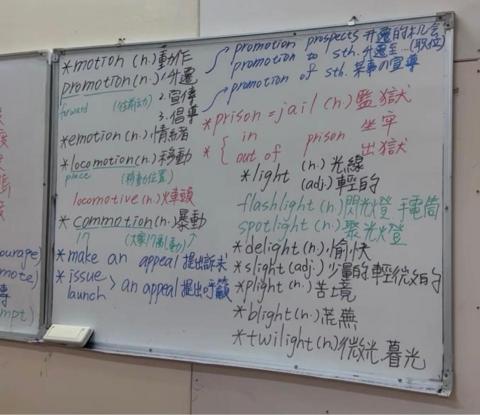 *motion (n.) 動作
promotion (n.) 1.升遷
forward (往前動) 2.宣傳
3.倡導
*emotion (n.) 情緒
*locomotion (n.) 移動
place (移動位置)
locomotive (n.) 火車頭
*commotion (n.) 暴動
*make an appeal 提出訴求
*issue
launch > an appeal 提出呼籲
promotion prospects 升遷的机会
promotion to sth. 升遷至...(職位)
promotion of sth. 某事的宣導
*prison = jail (n.) 監獄
* { in prison 坐牢
out of 出獄
*light (n.) 光線
(adj.) 輕的
flashlight (n.) 閃光燈 手電筒
spotlight (n.) 聚光燈
*delight (n.) 愉快
*slight (adj.) 少量的 輕微的
*plight (n.) 苦境
*blight (n.) 荒蕪
*twilight (n.) 微光.暮光
ourage)
mote)
mpt)